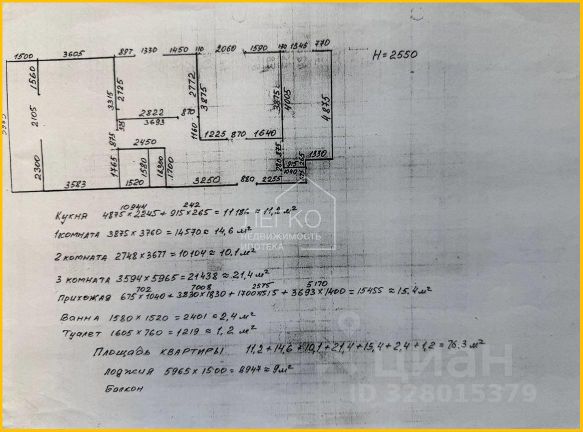 1500 3605 897 1330 1450 110 2060 1590 170 1345 770
H=2550
1560
2105
2300
3315
2725
2772
3875
3875
4005
4875
2822
3693
1160
1225 870 1640
875
2450
1765
1580
1700
1330
915
265
3583 1520 3250 880 2255
10944 242
Кухня 4875×2245+915×265=11186≈11,2 м²
1 комната 3875×3760=14570≈14,6 м²
2 комната 2748×3677=10104≈10,1 м²
3 комната 3594×5965=21438≈21,4 м²
702 7008 2575 5170
Прихожая 675×1040+3830×1830+1700×1515+3693×1400=15455≈15,4 м²
Ванна 1580×1520=2401≈2,4 м²
Туалет 1605×760=1219≈1,2 м²
Площадь квартиры 11,2+14,6+10,1+21,4+15,4+2,4+1,2=76.3 м²
лоджия 5965×1500=8947≈9 м²
Балкон
ЛЕГКО
НЕДВИЖИМОСТЬ
ИПОТЕКА
циан
ID 328015379